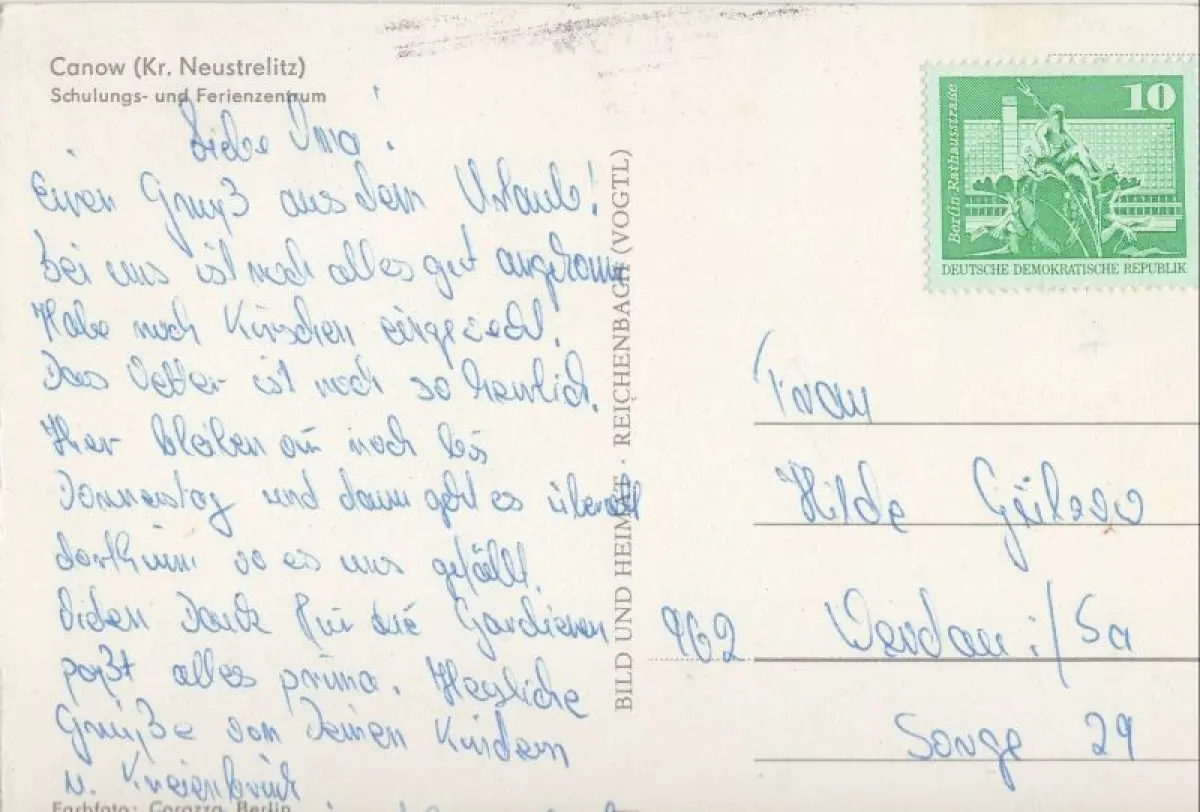 Canow (Kr. Neustrelitz)
Schulungs- und Ferienzentrum
Liebe Oma!
Einen Gruß aus dem Urlaub!
Bei uns ist noch alles gut angekomm
Habe noch Kirschen eingeweckt.
Das Wetter ist noch so herrlich.
Hier bleiben wir noch bis
Donnerstag und dann geht es überall
dorthin wo es uns gefällt.
Vielen Dank für die Gardienen
paßt alles prima. Herzliche
Grüße von Deinen Kindern
u.
Farbfoto: Corazza, Berlin
BILD UND HEIMAT · REICHENBACH (VOGTL)
Berlin-Rathausstraße
10
DEUTSCHE DEMOKRATISCHE REPUBLIK
Frau
Hilde
962 Werdau i/Sa
29